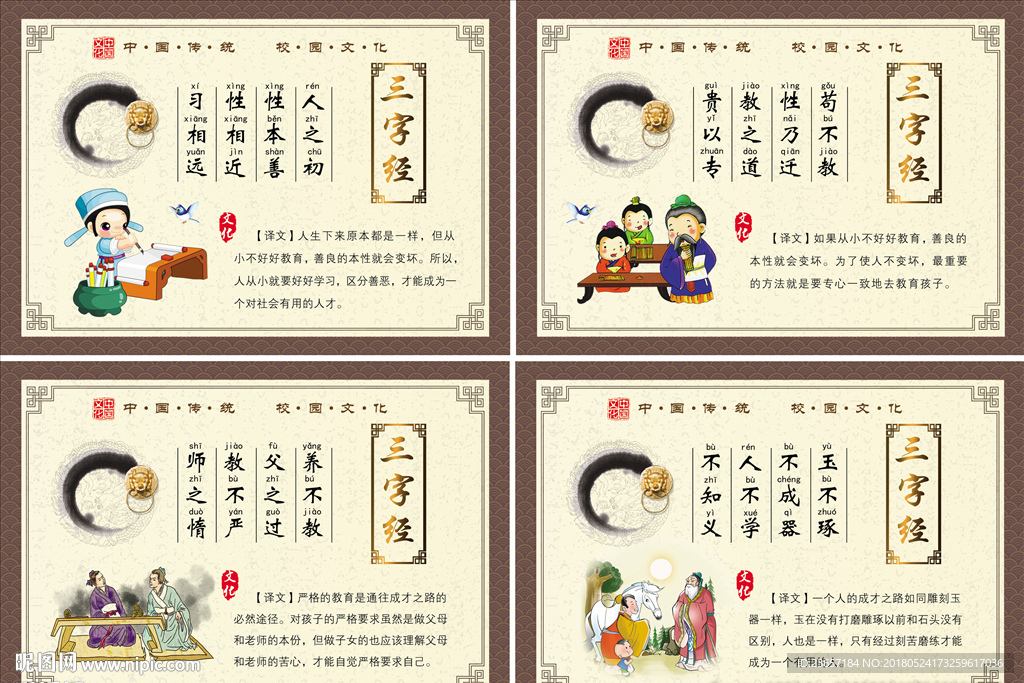 中国文化 中·国·传·统 校·园·文·化
三字经
rén zhī chū
人之初
xìng běn shàn
性本善
xìng xiāng jìn
性相近
xí xiāng yuǎn
习相远
文化
【译文】人生下来原本都是一样，但从
小不好好教育，善良的本性就会变坏。所以，
人从小就要好好学习，区分善恶，才能成为一
个对社会有用的人才。
中国文化 中·国·传·统 校·园·文·化
三字经
gǒu bú jiào
苟不教
xìng nǎi qiān
性乃迁
jiào zhī dào
教之道
guì yǐ zhuān
贵以专
文化
【译文】如果从小不好好教育，善良的
本性就会变坏。为了使人不变坏，最重要
的方法就是要专心一致地去教育孩子。
中国文化 中·国·传·统 校·园·文·化
三字经
yǎng bú jiào
养不教
fù zhī guò
父之过
jiào bù yán
教不严
shī zhī duò
师之惰
文化
【译文】严格的教育是通往成才之路的
必然途径。对孩子的严格要求虽然是做父母
和老师的本份，但做子女的也应该理解父母
和老师的苦心，才能自觉严格要求自己。
中国文化 中·国·传·统 校·园·文·化
三字经
yù bù zhuó
玉不琢
bù chéng qì
不成器
rén bù xué
人不学
bù zhī yì
不知义
文化
【译文】一个人的成才之路如同雕刻玉
器一样，玉在没有打磨雕琢以前和石头没有
区别，人也是一样，只有经过刻苦磨练才能
成为一个有用的人
昵图网 www.nipic.com
NO:20180524173259617036